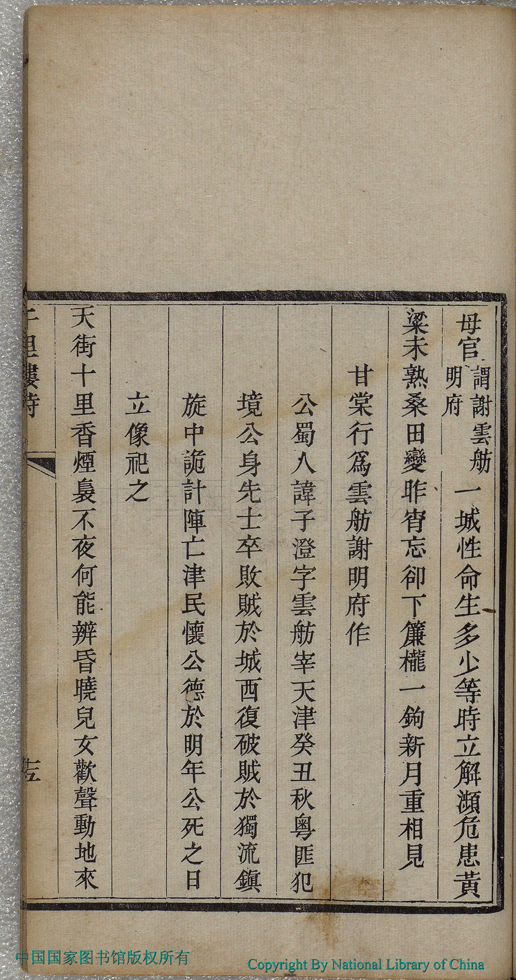 母官謂謝雲舫明府一城性命生多少等時立解瀕危患黃
粱未熟桑田變昨宵忘卻下簾櫳一鉤新月重相見
甘棠行爲雲舫謝明府作
公蜀人諱子澄字雲舫宰天津癸丑秋粵匪犯
境公身先士卒敗賊於城西復破賊於獨流鎮
旋中詭計陣亡津民懷公德於明年公死之日
立像祀之
天街十里香煙裊不夜何能辨昏曉兒女歡聲動地來
中国国家图书馆版权所有
Copyright By National Library of China